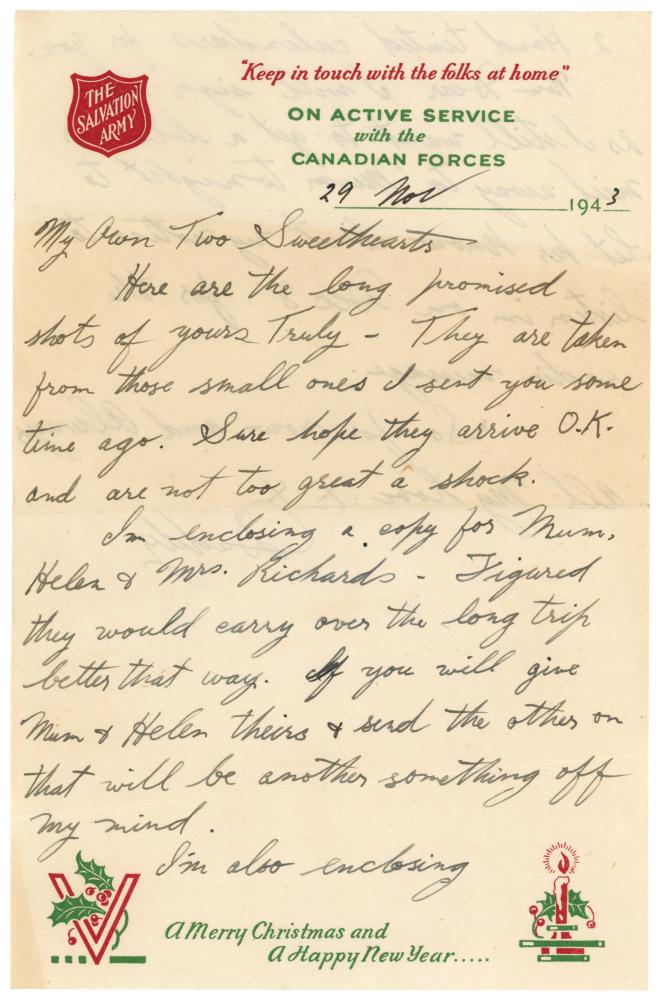 "Keep in touch with the folks at home"
THE
SALVATION
ARMY
ON ACTIVE SERVICE
with the
CANADIAN FORCES
29 Nov 1943
My Own Two Sweethearts
Here are the long promised
shots of yours Truly - They are taken
from those small ones I sent you some
time ago. Sure hope they arrive O.K.
and are not too great a shock.
I'm enclosing a copy for Mum,
Helen & Mrs. Richards - Figured
they would carry over the long trip
better that way. If you will give
Mum & Helen theirs & send the other on
that will be another something off
my mind.
I'm also enclosing
V
A Merry Christmas and
A Happy New Year.....